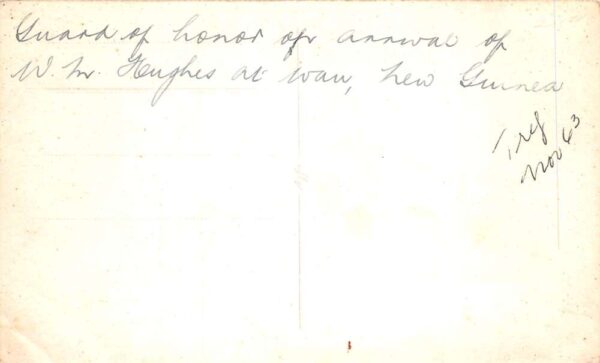 Guard of honor off arrival of
W. M. Hughes at Wau, New Guinea
Nov 63